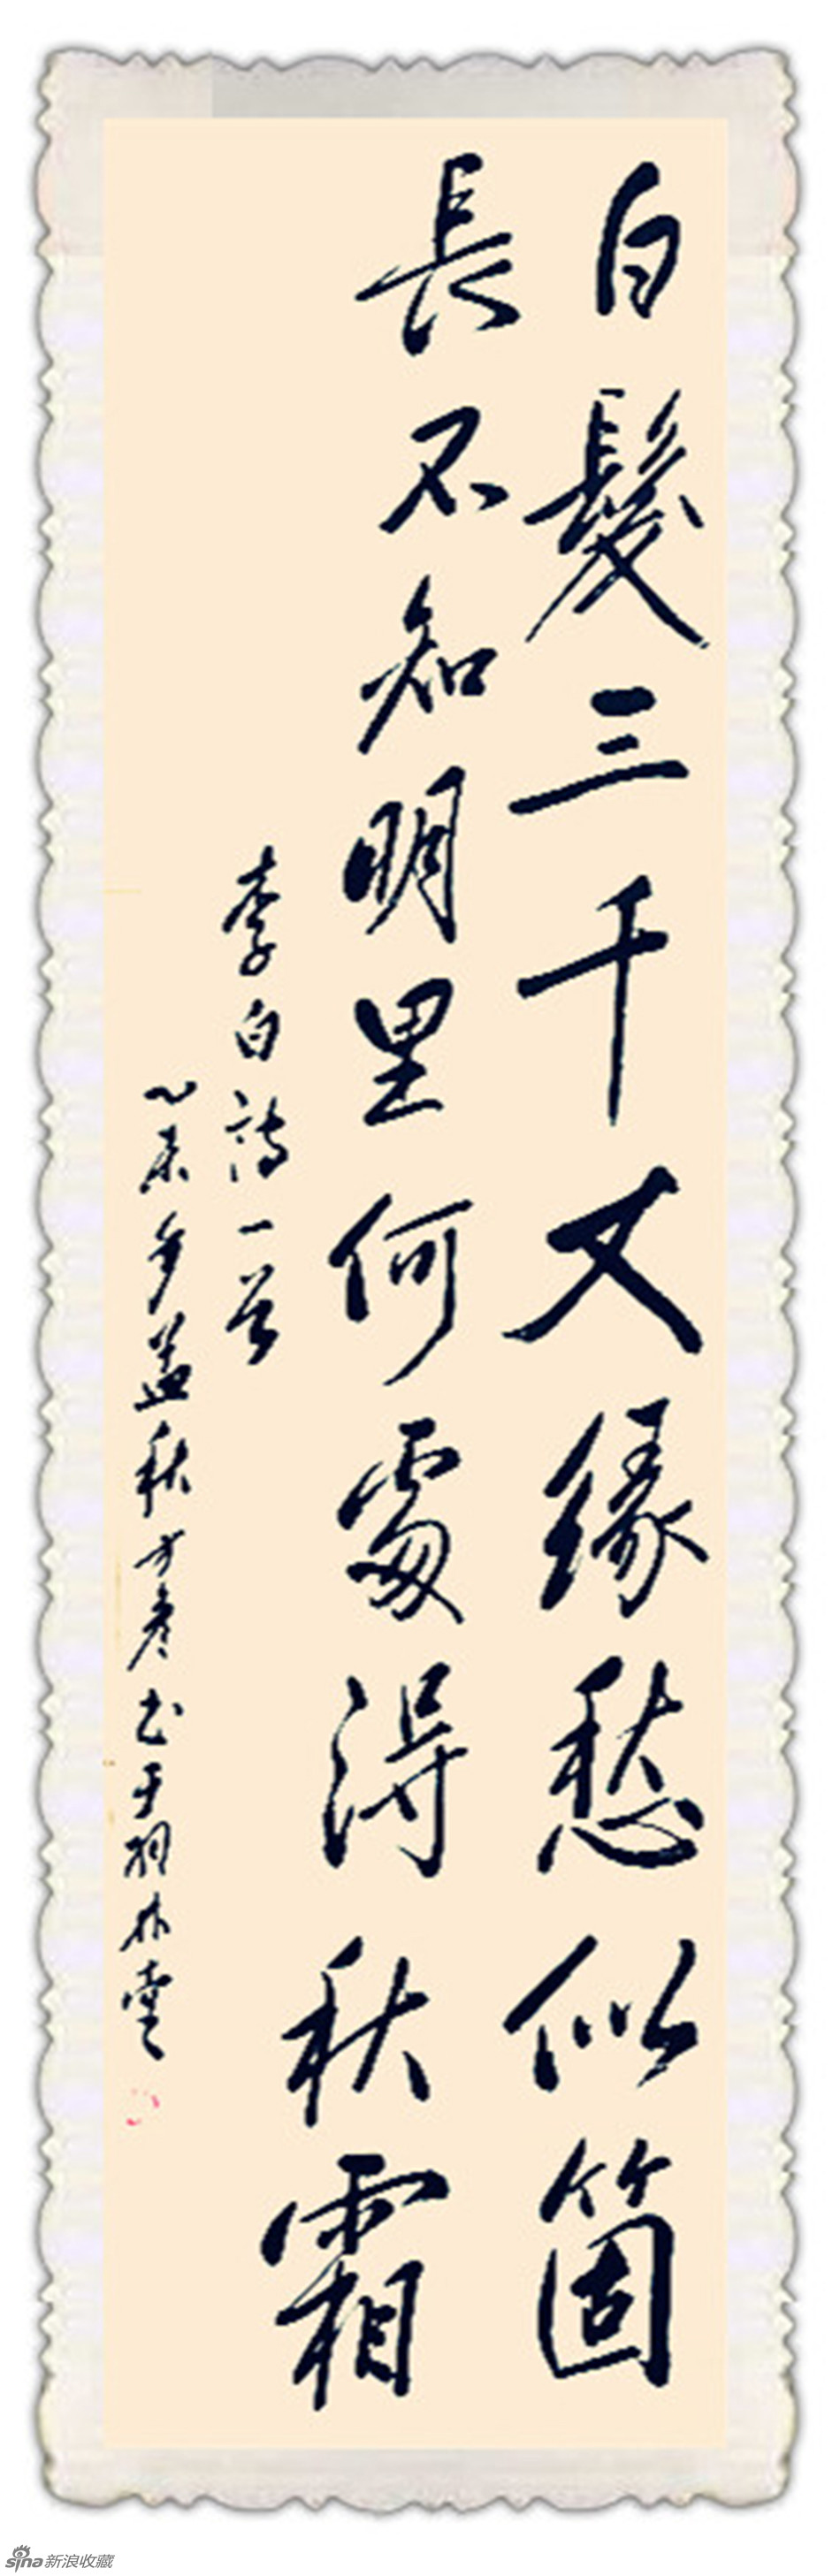 白髮三千丈緣愁似箇
長不知明里何處得秋霜
李白詩一首
乙未年孟秋方彦书于羽林堂
sina新浪收藏